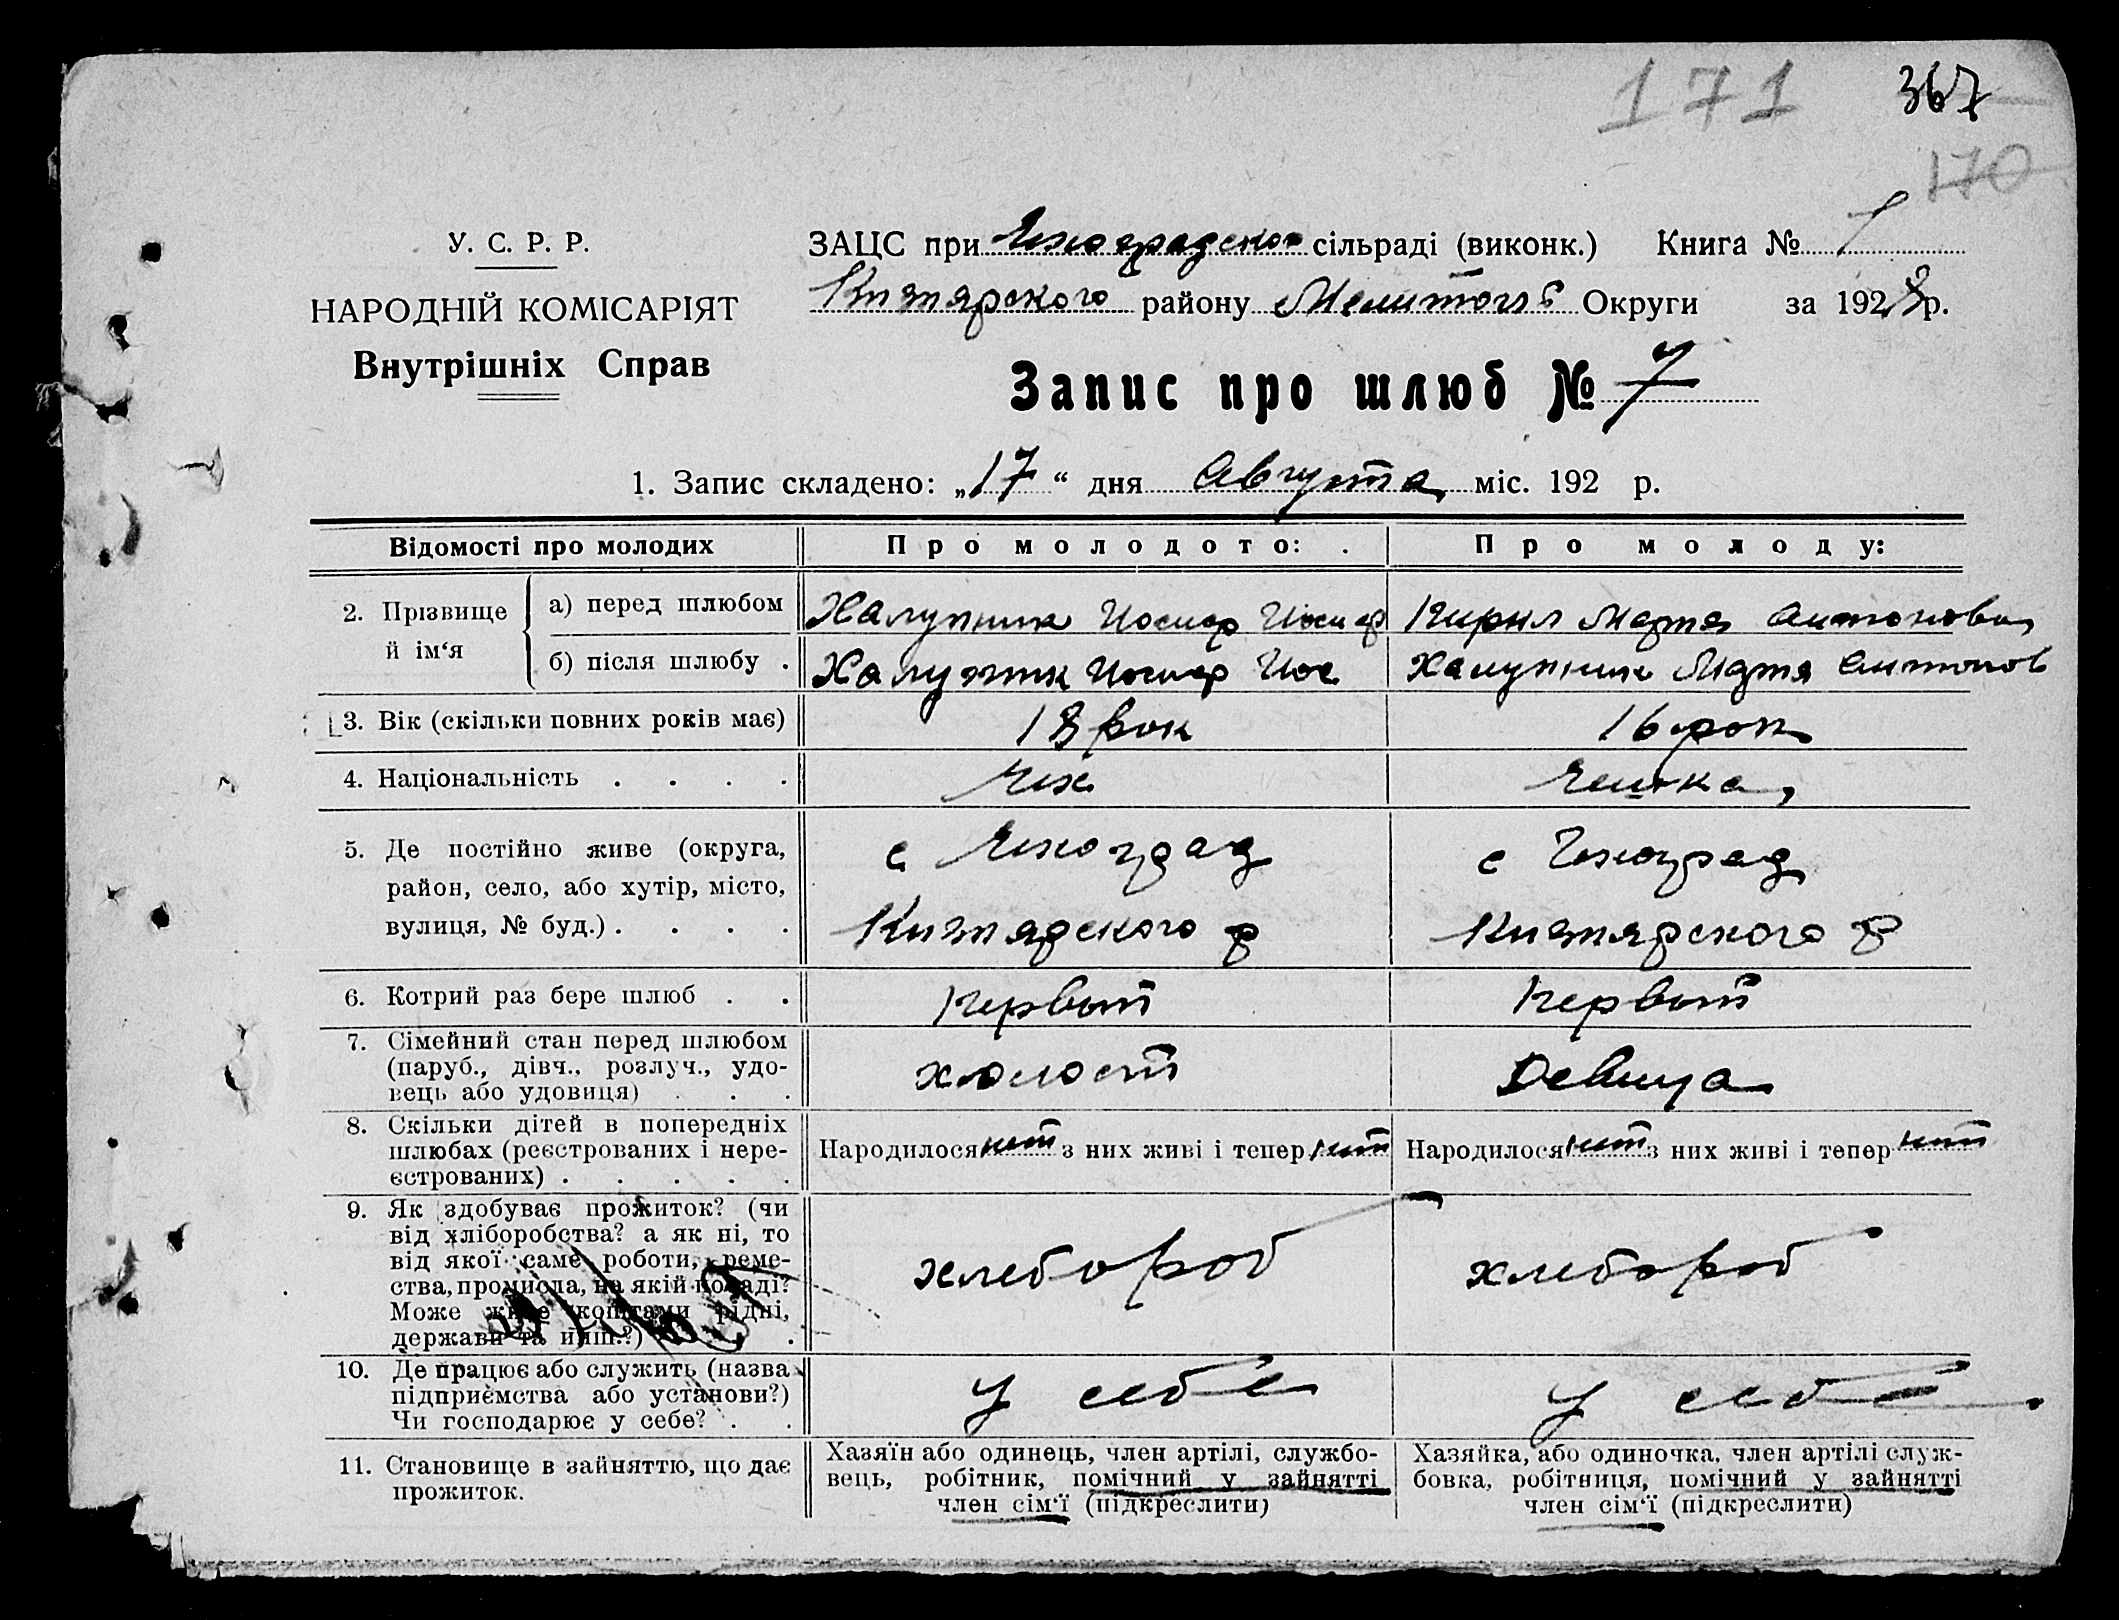 171 367
170
У. С. Р. Р.
НАРОДНІЙ КОМІСАРІЯТ
Внутрішніх Справ
ЗАЦС при Чехоградской сільраді (виконк.) Книга № 1
Кизиярского району Мелитоп Округи за 192 р.
Запис про шлюб № 7
1. Запис складено: „17“ дня Августа міс. 192 р.
Відомості про молодих
Про молодого:
Про молоду:
2. Прізвище й ім‘я
а) перед шлюбом
Халупник Иосиф Иосиф
Кирил Мария Антоновн
б) після шлюбу .
Халупник Иосиф Иос
Халупник Мария Антонов
3. Вік (скільки повних років має)
18 рок
16 рок
4. Національність . . . .
Чех
Чешка
5. Де постійно живе (округа,
район, село, або хутір, місто,
вулиця, № буд.) . . . .
с Чехоград
Кизиярского р
с Чехоград
Кизиярского р
6. Котрий раз бере шлюб . .
Первый
Первый
7. Сімейний стан перед шлюбом
(паруб., дівч., розлуч., удо-
вець або удовиця) . . .
холост
Девица
8. Скільки дітей в попередніх
шлюбах (реєстрованих і нере-
єстрованих) . . . . .
Народилося нет з них живі і тепер нет
Народилося нет з них живі і тепер нет
9. Як здобуває прожиток? (чи
від хліборобства? а як ні, то
від якої саме роботи, реме-
ства, промисла, на якій посаді?
Може живе коштами рідні,
держави та инш.?) .
хлебороб
хлебороб
10. Де працює або служить (назва
підприємства або установи?)
Чи господарює у себе? . .
у себе
у себе
11. Становище в зайняттю, що дає
прожиток.
Хазяїн або одинець, член артілі, службо-
вець, робітник, помічний у зайнятті
член сім‘ї (підкреслити)
Хазяйка, або одиночка, член артілі служ-
бовка, робітниця, помічний у зайнятті
член сім‘ї (підкреслити)